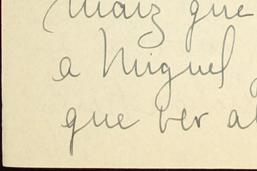 Maiz que
a Miguel
que ver a